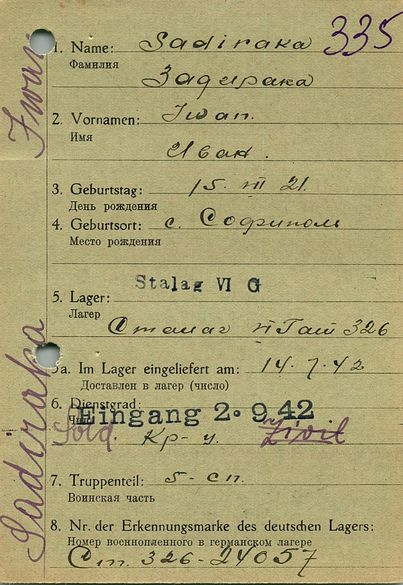 335
1. Name: Sadiraka
Фамилия
Задирака
2. Vornamen: Iwan.
Имя
Иван.
3. Geburtstag: 15. III 21.
День рождения
4. Geburtsort: с. Софиполь
Место рождения
Stalag VI G
5. Lager:
Лагер
Сталаг 326
5a. Im Lager eingeliefert am: 14.7.42
Доставлен в лагер (число)
6. Dienstgrad:
Eingang 2. 9. 42
Sold. Кр-ц. Zivil
7. Truppenteil: 5-сп.
Воинская часть
8. Nr. der Erkennungsmarke des deutschen Lagers:
Номер военнопленного в германском лагере
Ст. 326-24057
Sadiraka Iwan